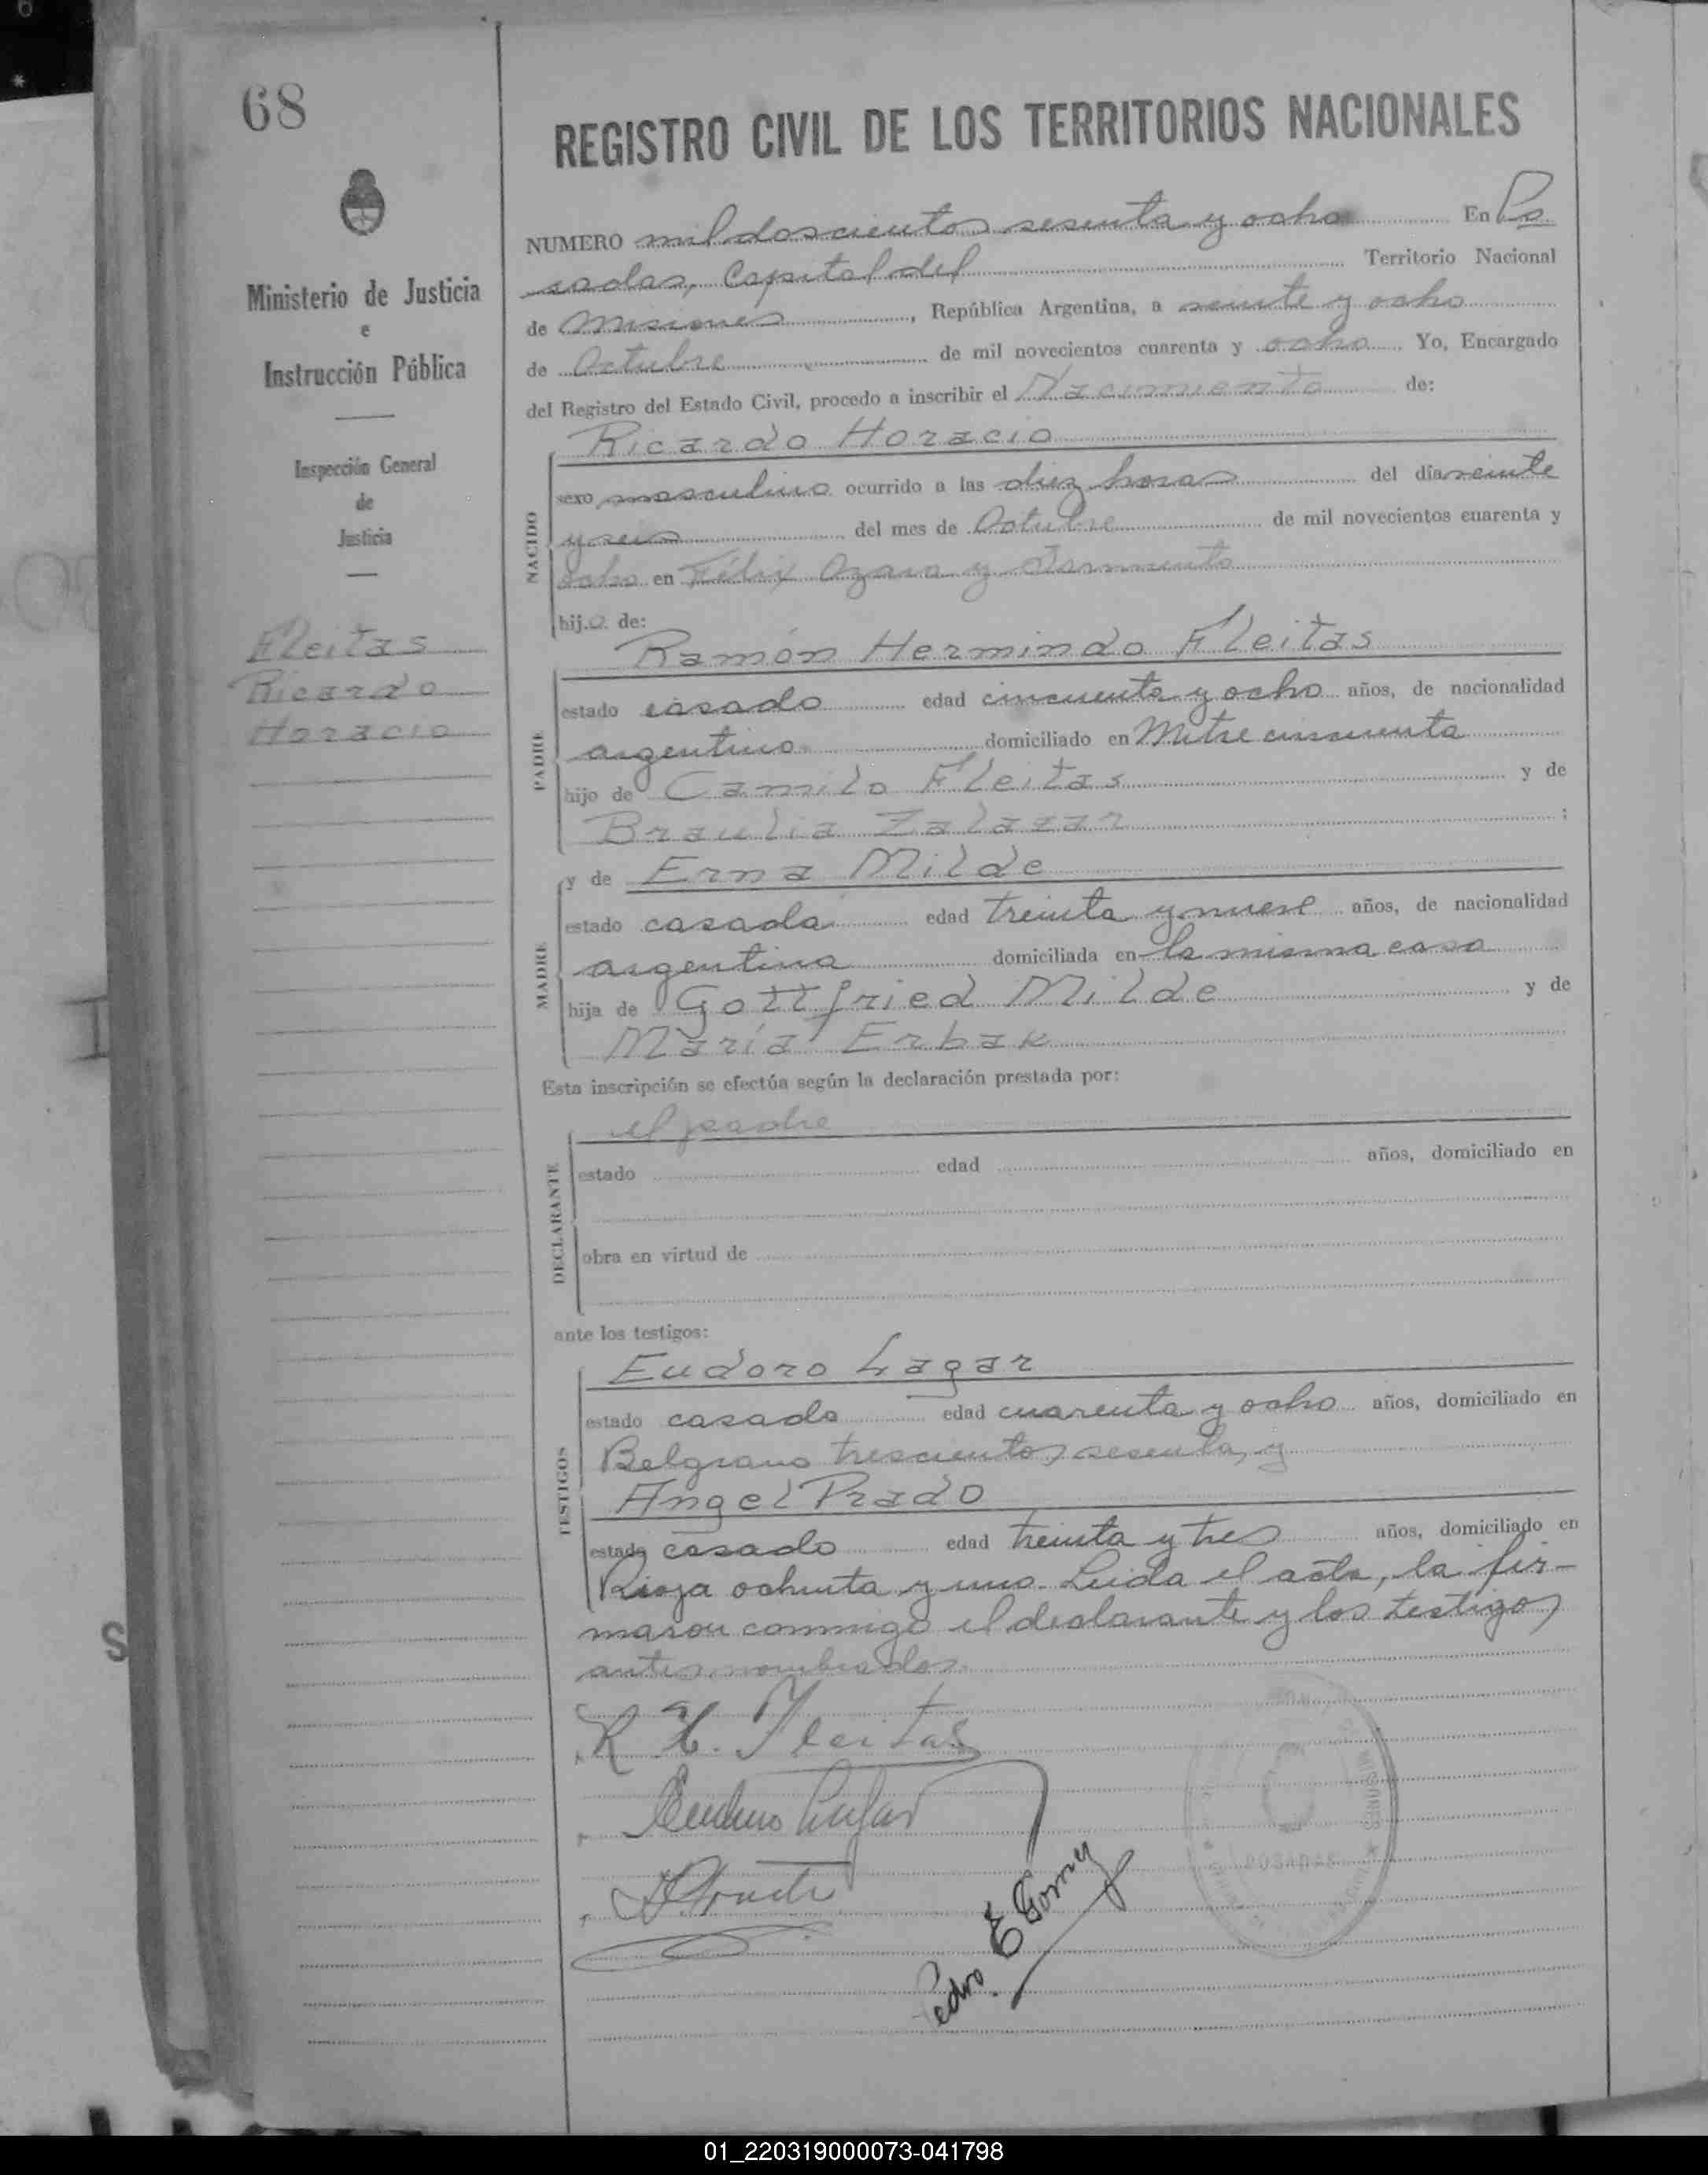 68
REGISTRO CIVIL DE LOS TERRITORIOS NACIONALES
Ministerio de Justicia
e
Instrucción Pública
Inspección General
de
Justicia
Fleitas
Ricardo
Horacio
NUMERO mil doscientos sesenta y ocho En Po
sadas, Capital del Territorio Nacional
de Misiones, República Argentina, a veinte y ocho
de Octubre de mil novecientos cuarenta y ocho Yo, Encargado
del Registro del Estado Civil, procedo a inscribir el Nacimiento de:
Ricardo Horacio
NACIDO
sexo masculino ocurrido a las diez horas del día veinte
y seis del mes de Octubre de mil novecientos cuarenta y
ocho en Félix Azara y Sarmiento
hijo de:
Ramón Hermindo Fleitas
PADRE
estado casado edad cincuenta y ocho años, de nacionalidad
argentino domiciliado en Mitre cincuenta
hijo de Camilo Fleitas y de
Braulia Zalazar ;
y de Erna Milde
MADRE
estado casada edad treinta y nueve años, de nacionalidad
argentina domiciliada en la misma casa
hija de Gottfried Milde y de
María Erbak
Esta inscripción se efectúa según la declaración prestada por:
el padre
DECLARANTE
estado edad años, domiciliado en
obra en virtud de
ante los testigos:
Eudoro Lagar
TESTIGOS
estado casado edad cuarenta y ocho años, domiciliado en
Belgrano trescientos sesenta, y
Angel Prado
estado casado edad treinta y tres años, domiciliado en
Rioja ochenta y uno. Leida el acta, la fir-
maron conmigo el declarante y los testigos
antes nombrados.
R H. Fleitas
Pedro E Gomez
MISIONES
POSADAS
01_220319000073-041798